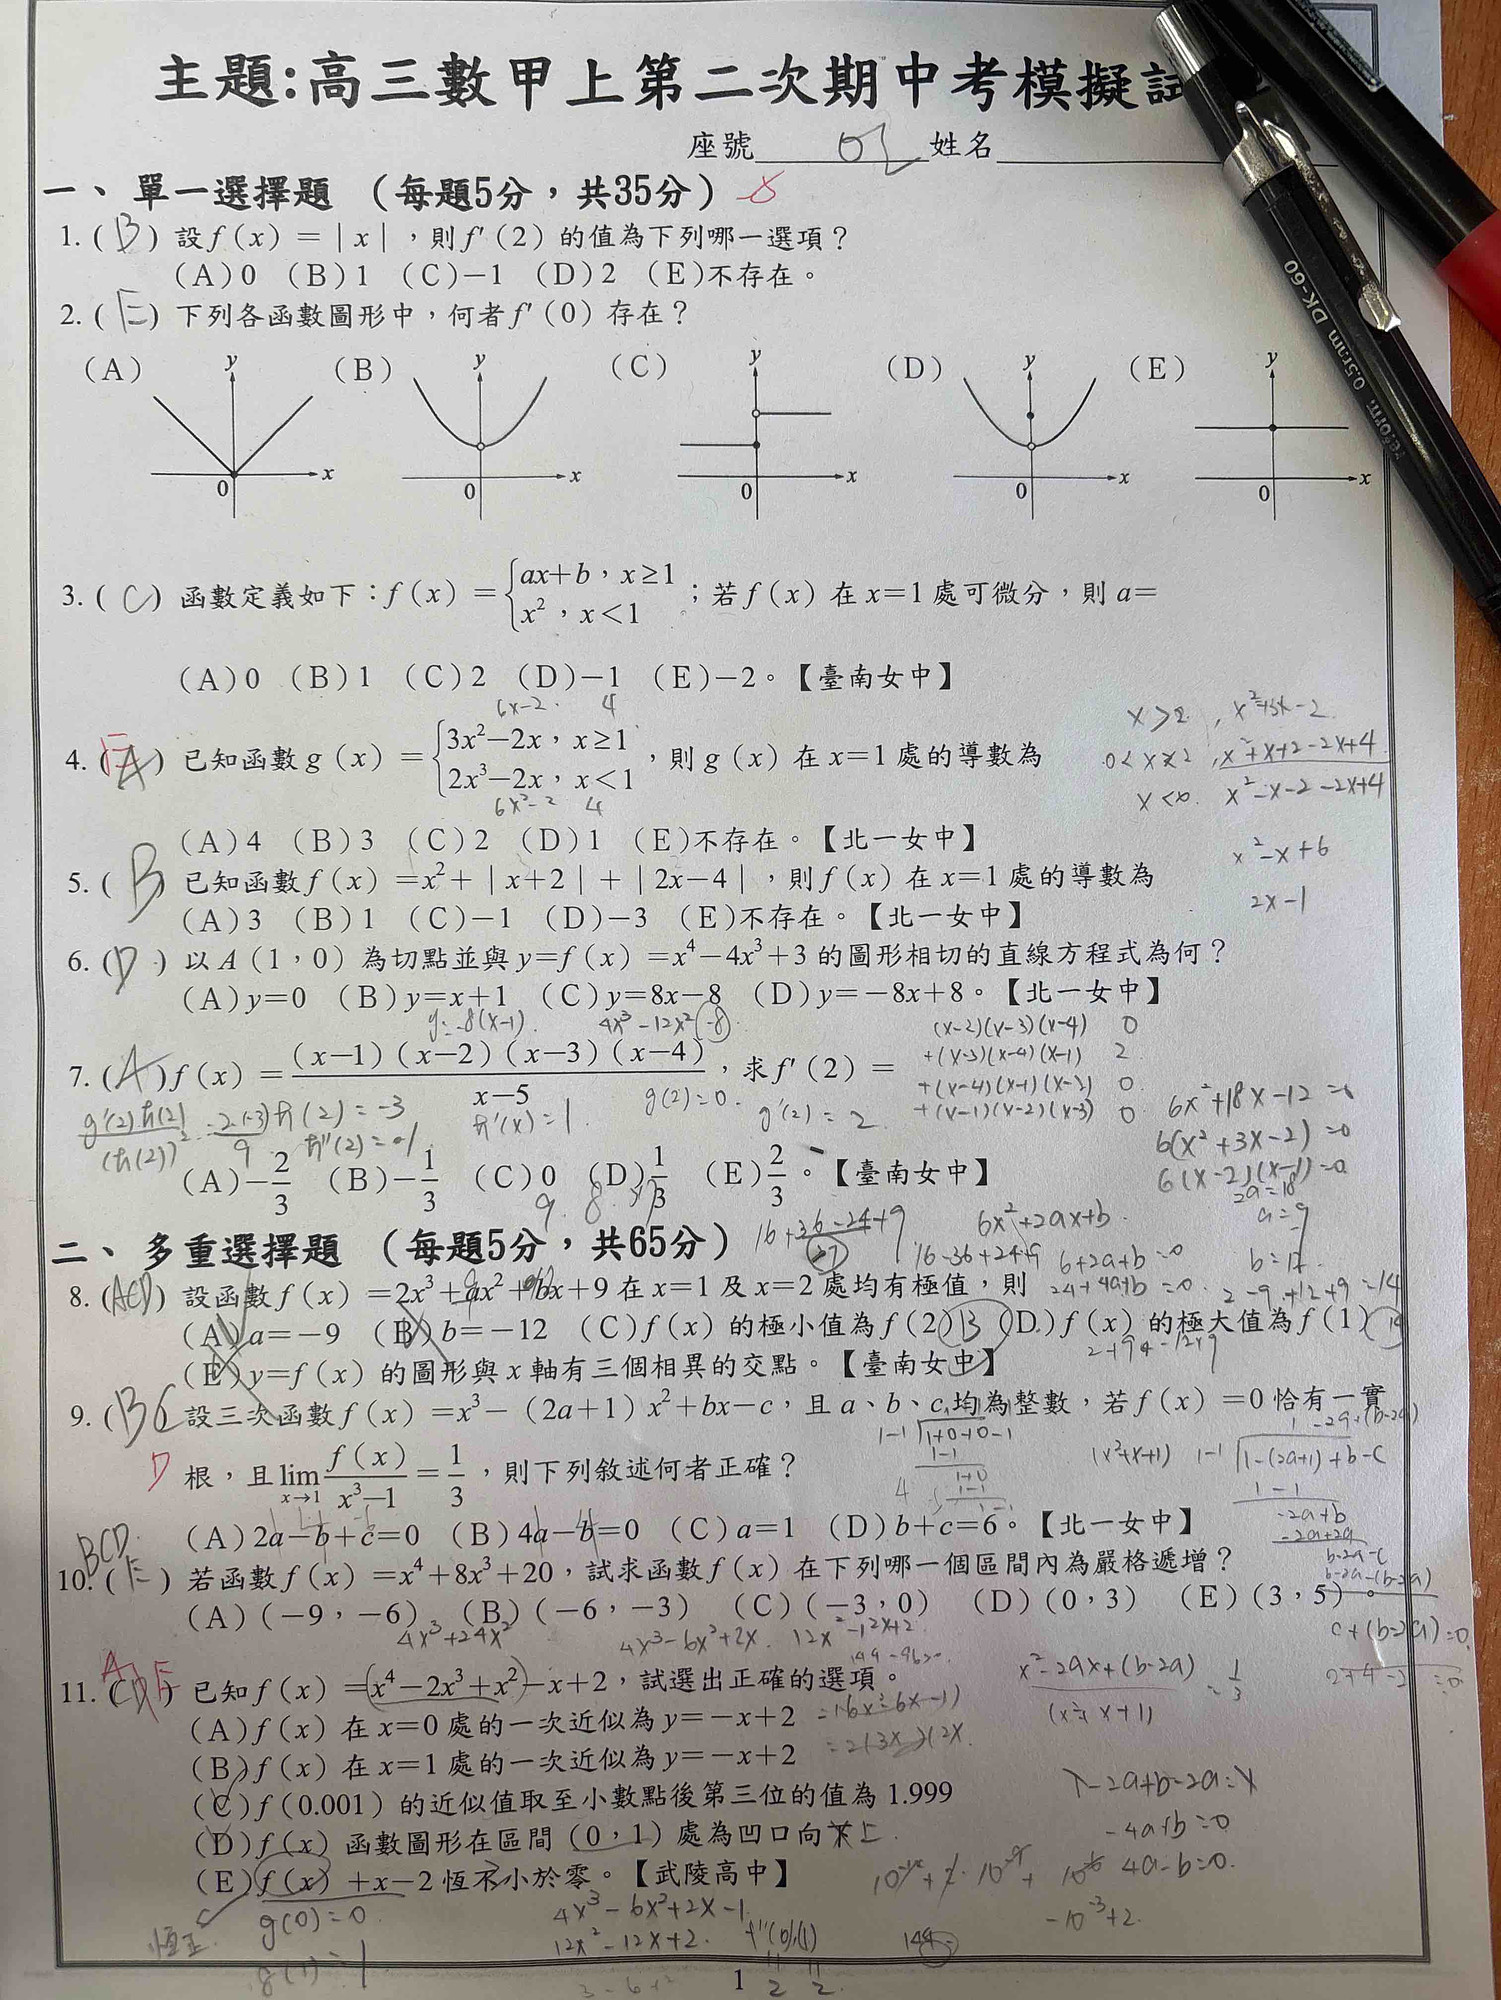 主題:高三數甲上第二次期中考模擬試
座號 02 姓名
一、單一選擇題 (每題5分,共35分)
1. ( B ) 設 f(x) = |x|,則 f'(2) 的值為下列哪一選項?
(A) 0 (B) 1 (C) −1 (D) 2 (E) 不存在。
2. ( E ) 下列各函數圖形中,何者 f'(0) 存在?
(A) (B) (C) (D) (E)
y y y y y
0 x 0 x 0 x 0 x 0 x
3. ( C ) 函數定義如下:f(x) = { ax+b,x≥1
x²,x<1 ;若 f(x) 在 x=1 處可微分,則 a=
(A) 0 (B) 1 (C) 2 (D) −1 (E) −2。【臺南女中】
6x-2. 4
4. ( E A ) 已知函數 g(x) = { 3x²−2x,x≥1
2x³−2x,x<1 ,則 g(x) 在 x=1 處的導數為
6x²-2 4
x>2, x²+3x-2
0<x<2, x²+x+2-2x+4
x<0. x²-x-2-2x+4
(A) 4 (B) 3 (C) 2 (D) 1 (E) 不存在。【北一女中】
x²-x+6
2x-1
5. ( B ) 已知函數 f(x) = x²+|x+2|+|2x−4|,則 f(x) 在 x=1 處的導數為
(A) 3 (B) 1 (C) −1 (D) −3 (E) 不存在。【北一女中】
6. ( D ) 以 A(1,0) 為切點並與 y=f(x) = x⁴−4x³+3 的圖形相切的直線方程式為何?
(A) y=0 (B) y=x+1 (C) y=8x−8 (D) y=−8x+8。【北一女中】
y=-8(x-1). 4x³-12x² -8
7. ( A ) f(x) = (x−1)(x−2)(x−3)(x−4) / x−5,求 f'(2) =
(x-2)(x-3)(x-4) 0
+(x-3)(x-4)(x-1) 2
+(x-4)(x-1)(x-2) 0
+(x-1)(x-2)(x-3) 0
g(2)=0. g'(2)=2
h(2)=-3 h'(x)=1
6x²+18x-12=0
6(x²+3x-2)=0
6(x-2)(x-1)=0
(A) −2/3 (B) −1/3 (C) 0 (D) 1/3 (E) 2/3。【臺南女中】
2a=18
a=9
二、多重選擇題 (每題5分,共65分)
16+36-24+9
16-36+24+9
6x²+2ax+b.
6+2a+b=0
24+4a+b=0.
b=12.
2-9+12+9=14
8. (ACD) 設函數 f(x) = 2x³+ax²+bx+9 在 x=1 及 x=2 處均有極值,則
(A) a=−9 (B) b=−12 (C) f(x) 的極小值為 f(2) 13 (D) f(x) 的極大值為 f(1) 14
(E) y=f(x) 的圖形與 x 軸有三個相異的交點。【臺南女中】
9. ( BC ) 設三次函數 f(x) = x³−(2a+1)x²+bx−c,且 a、b、c 均為整數,若 f(x) = 0 恰有一實
D 根,且 lim x→1 f(x)/x³−1 = 1/3,則下列敘述何者正確?
(A) 2a−b+c=0 (B) 4a−b=0 (C) a=1 (D) b+c=6。【北一女中】
BCD
10. ( E ) 若函數 f(x) = x⁴+8x³+20,試求函數 f(x) 在下列哪一個區間內為嚴格遞增?
(A) (−9,−6) (B) (−6,−3) (C) (−3,0) (D) (0,3) (E) (3,5)。
4x³+24x² 4x³-6x²+2x. 12x²-12x+2.
c+(b-2a)=0
A
11. ( CD E ) 已知 f(x) = x⁴−2x³+x²−x+2,試選出正確的選項。
(A) f(x) 在 x=0 處的一次近似為 y=−x+2
(B) f(x) 在 x=1 處的一次近似為 y=−x+2
(C) f(0.001) 的近似值取至小數點後第三位的值為 1.999
(D) f(x) 函數圖形在區間 (0,1) 處為凹口向下 上
(E) f(x) +x−2 恆不小於零。【武陵高中】
x²-2ax+(b-2a) / (x²+x+1) = 1/3
1-2a+b-2a=1
-4a+b=0
4a-b=0.
-10⁻³+2
恆正. g(0)=0
4x³-6x²+2x-1
12x²-12x+2.
1